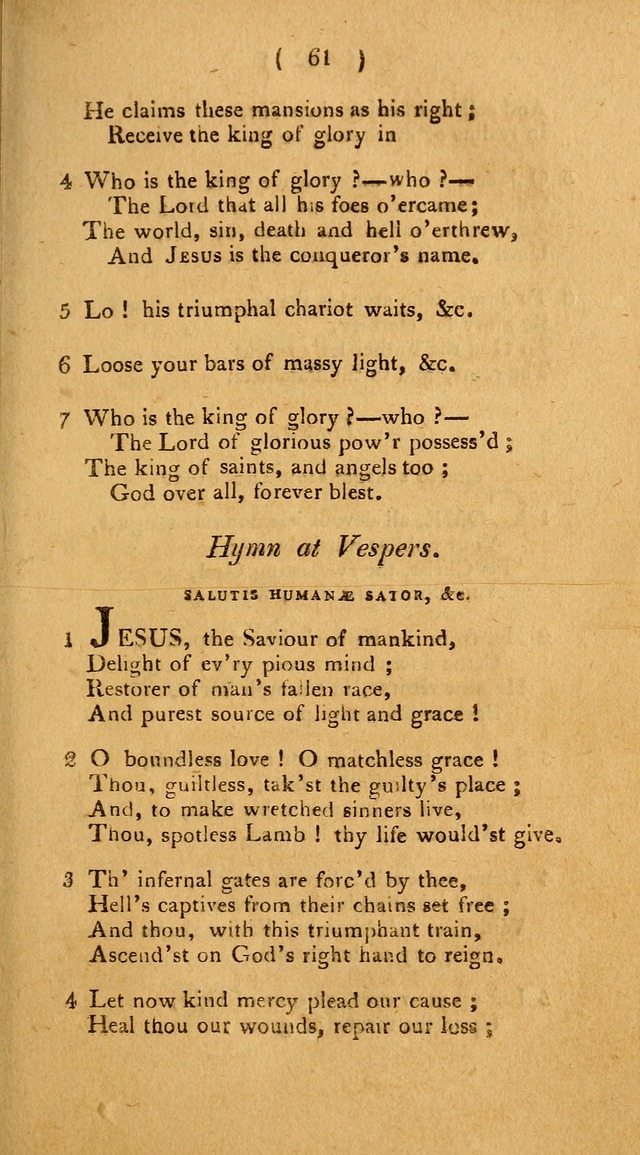 ( 61 )
He claims these mansions as his right ;
Receive the king of glory in
4 Who is the king of glory ?—who ?—
The Lord that all his foes o'ercame;
The world, sin, death and hell o'erthrew,
And JESUS is the conqueror's name.
5 Lo ! his triumphal chariot waits, &c.
6 Loose your bars of massy light, &c.
7 Who is the king of glory ?—who ?—
The Lord of glorious pow'r possess'd ;
The king of saints, and angels too ;
God over all, forever blest.
Hymn at Vespers.
SALUTIS HUMANÆ SATOR, &c.
1 JESUS, the Saviour of mankind,
Delight of ev'ry pious mind ;
Restorer of man's fallen race,
And purest source of light and grace !
2 O boundless love ! O matchless grace !
Thou, guiltless, tak'st the guilty's place ;
And, to make wretched sinners live,
Thou, spotless Lamb ! thy life would'st give.
3 Th' infernal gates are forc'd by thee,
Hell's captives from their chains set free ;
And thou, with this triumphant train,
Ascend'st on God's right hand to reign.
4 Let now kind mercy plead our cause ;
Heal thou our wounds, repair our loss ;